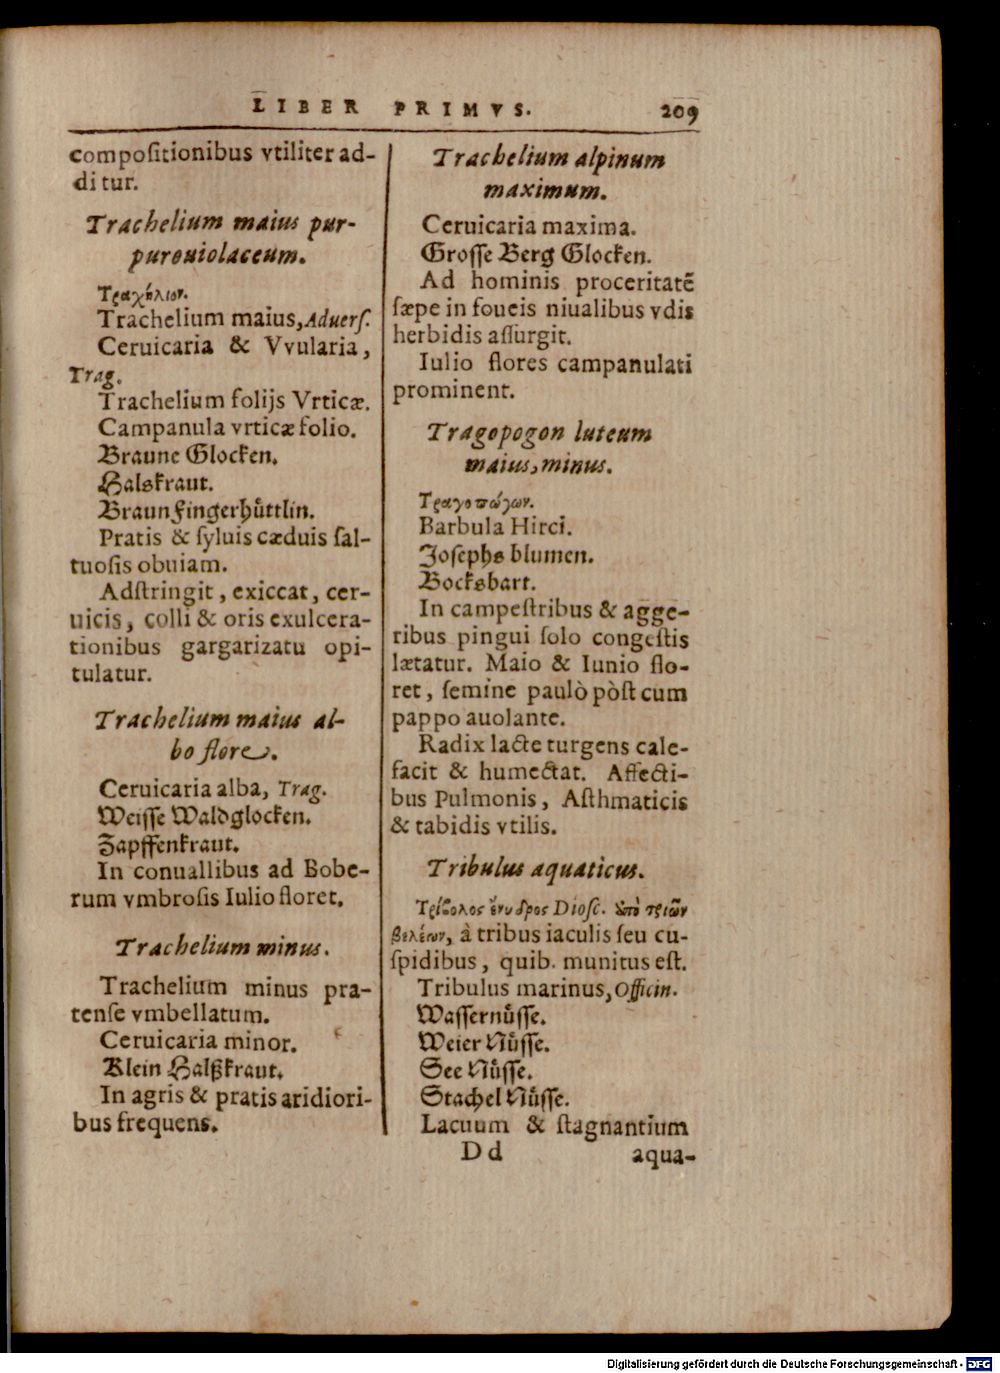 LIBER PRIMVS. 209
compositionibus vtiliter ad-
ditur.
Trachelium maius pur-
pureuiolaceum.
Τραχήλιον.
Trachelium maius, Aduerſ.
Ceruicaria & Vvularia,
Trag.
Trachelium folijs Vrticæ.
Campanula vrticæ folio.
Braune Glocken.
Halskraut.
Braun Fingerhuͤttlin.
Pratis & ſyluis cæduis ſal-
tuoſis obuiam.
Adſtringit, exiccat, cer-
uicis, colli & oris exulcera-
tionibus gargarizatu opi-
tulatur.
Trachelium maius al-
bo flore.
Ceruicaria alba, Trag.
Weiſſe Waldglocken.
Zapffenkraut.
In conuallibus ad Bobe-
rum vmbroſis Iulio floret.
Trachelium minus.
Trachelium minus pra-
tenſe vmbellatum.
Ceruicaria minor.
Klein Halßkraut.
In agris & pratis aridiori-
bus frequens.
Trachelium alpinum
maximum.
Ceruicaria maxima.
Groſſe Berg Glocken.
Ad hominis proceritatē
ſæpe in foueis niualibus vdis
herbidis aſſurgit.
Iulio flores campanulati
prominent.
Tragopogon luteum
maius, minus.
Τραγοπώγων.
Barbula Hirci.
Joſephs blumen.
Bocksbart.
In campeſtribus & agge-
ribus pingui ſolo congeſtis
lætatur. Maio & Iunio flo-
ret, ſemine paulò pòſt cum
pappo auolante.
Radix lacte turgens cale-
facit & humectat. Affecti-
bus Pulmonis, Aſthmaticis
& tabidis vtilis.
Tribulus aquaticus.
Τρίβολος ἔνυδρος Dioſc. ὑπὸ τριῶν
βελέων, à tribus iaculis ſeu cu-
ſpidibus, quib. munitus eſt.
Tribulus marinus, Officin.
Waſſernuͤſſe.
Weier Nuͤſſe.
See Nuͤſſe.
Stachel Nuͤſſe.
Lacuum & ſtagnantium
Dd aqua-
Digitalisierung gefördert durch die Deutsche Forschungsgemeinschaft - DFG